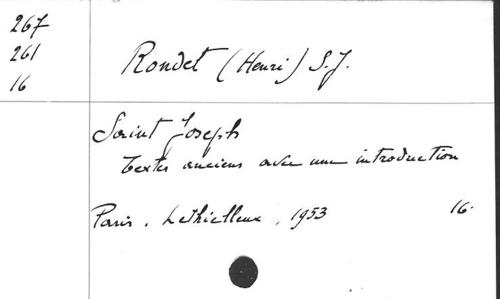 267
261
16
Rondet (Henri) S.J.
Saint Joseph
Textes anciens avec une introduction
Paris. Lethielleux, 1953 16.